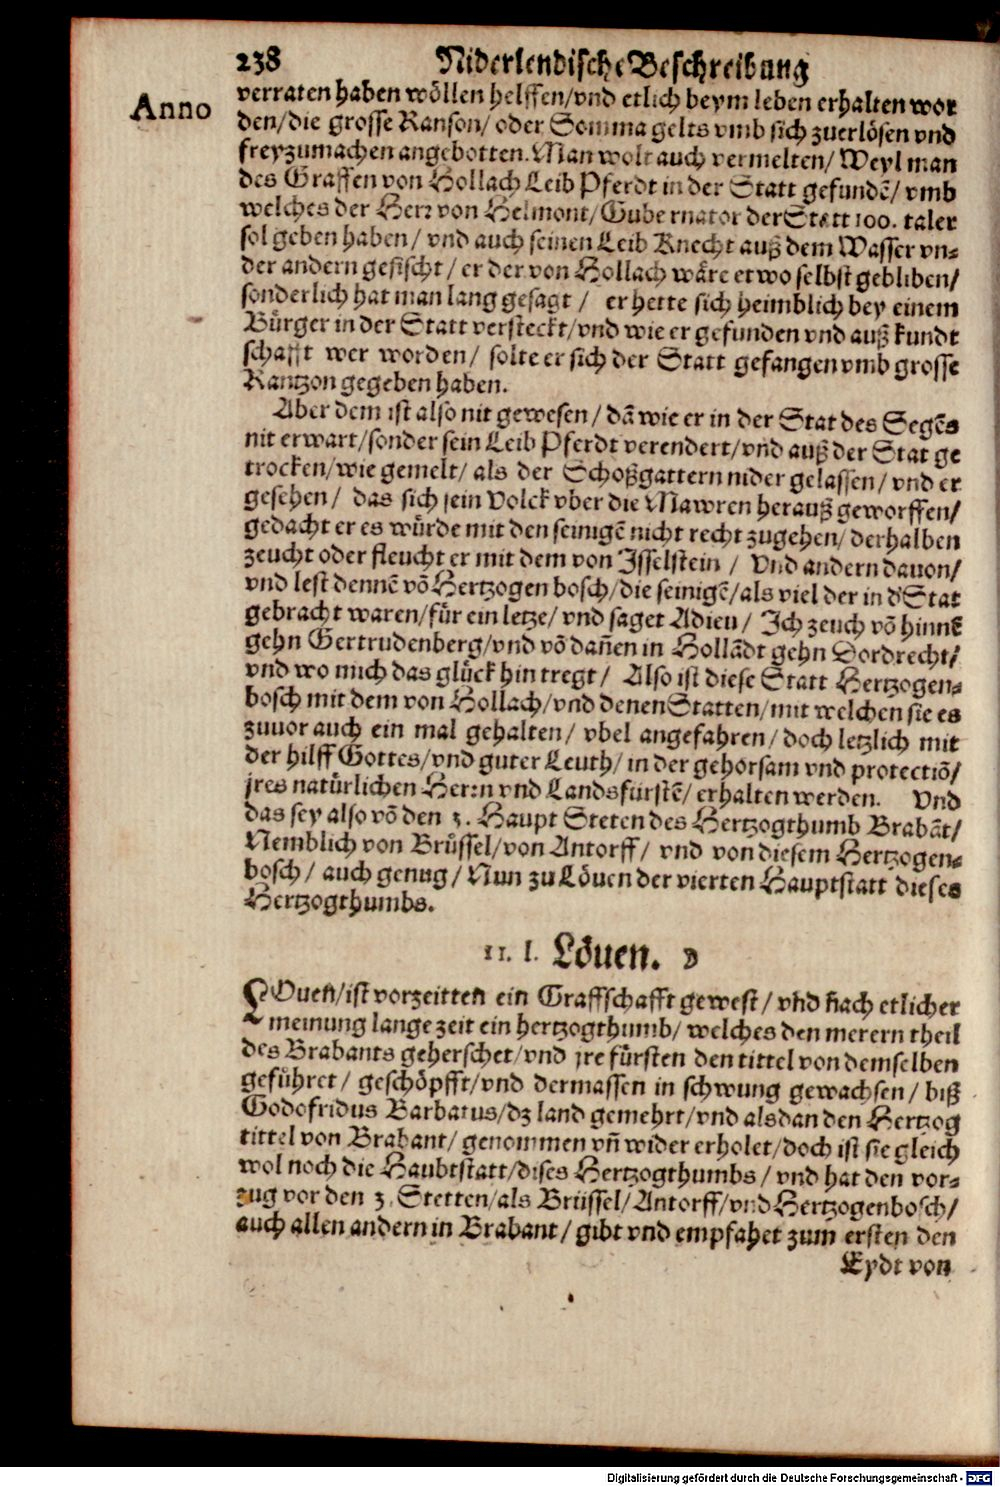 238 Niderlendische Beschreibung
Anno
verraten haben wöllen helffen/vnd etlich beym leben erhalten wor
den/die grosse Ranson/ oder Somma gelts vmb sich zuerlösen vnd
freyzumachen angebotten. Man wolt auch vermelten/ Weyl man
des Graffen von Hollach Leib Pferdt in der Statt gefundē/ vmb
welches der Herr von Helmont/ Gubernator der Statt 100. taler
sol geben haben/ vnd auch seinen Leib Knecht auß dem Wasser vn-
der andern gefischt/ er der von Hollach wäre etwo selbst gebliben/
sonderlich hat man lang gesagt/ er hette sich heimblich bey einem
Bürger in der Statt versteckt/vnd wie er gefunden vnd auß kundt
schafft wer worden/ solte er sich der Statt gefangen vmb grosse
Rantzon gegeben haben.
Aber dem ist also nit gewesen/ dā wie er in der Stat des Segēs
nit erwart/sonder sein Leib Pferdt verendert/vnd auß der Stat ge
trocken/wie gemelt/ als der Schoßgattern nider gelassen/ vnd er
gesehen/ das sich sein Volck vber die Mawren herauß geworffen/
gedacht er es würde mit den seinigē nicht recht zugehen/ derhalben
zeucht oder fleucht er mit dem von Isselstein/ Vnd andern dauon/
vnd lest dennē vō Hertzogen bosch/die seinigē/als viel der in d'Stat
gebracht waren/für ein letze/ vnd saget Adieu/ Ich zeuch vō hinnē
gehn Gertrudenberg/vnd vō dañen in Hollādt gehn Dordrecht/
vnd wo mich das glück hin tregt/ Also ist diese Statt Hertzogen-
bosch mit dem von Hollach/vnd denen Statten/mit welchen sie es
zuuor auch ein mal gehalten/ vbel angefahren/ doch letzlich mit
der hilff Gottes/vnd guter Leuth/ in der gehorsam vnd protectiō/
jres natürlichen Herrn vnd Landsfürstē/ erhalten werden. Vnd
das sey also vō den 3. Haupt Steten des Hertzogthumb Brabāt/
Nemblich von Brüssel/von Antorff/ vnd von diesem Hertzogen-
bosch/ auch genug/ Nun zu Löuen der vierten Hauptstatt dieses
Hertzogthumbs.
11. I. Löuen. D
LOuen/ist vorzeitten ein Graffschafft gewest/ vnd nach etlicher
meinung lange zeit ein hertzogthumb/ welches den merern theil
des Brabants geherschet/vnd jre fürsten den tittel von demselben
geführet/ geschöpfft/vnd dermassen in schwung gewachsen/ biß
Godofridus Barbatus/dz land gemehrt/vnd alsdan den Hertzog
tittel von Brabant/ genommen vñ wider erholet/doch ist sie gleich
wol noch die Haubtstatt/dises Hertzogthumbs/ vnd hat den vor-
zug vor den 3. Stetten/als Brüssel/Antorff/vnd Hertzogenbosch/
auch allen andern in Brabant/ gibt vnd empfahet zum ersten den
Eydt von
Digitalisierung gefördert durch die Deutsche Forschungsgemeinschaft - DFG